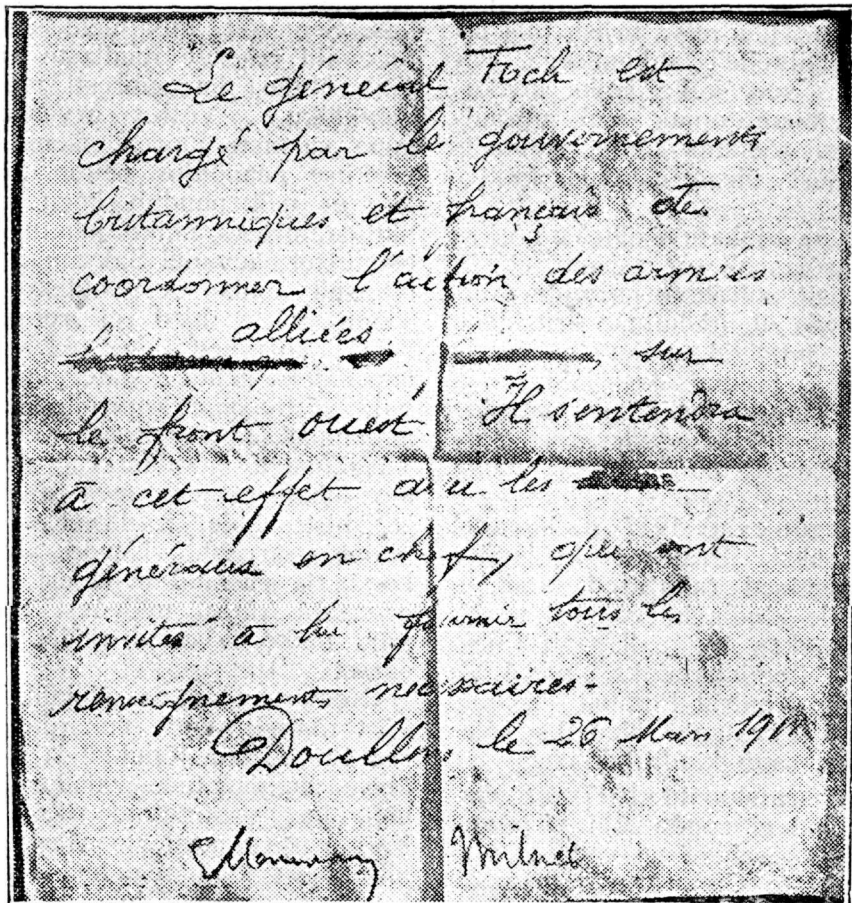 Le général Foch est
chargé par les gouvernements
britanniques et français de
coordonner l'action des armées
alliées
sur
le front ouest. Il s'entendra
à cet effet avec les
généraux en chef, qui sont
invités à lui fournir tous les
renseignements nécessaires.
Doullens le 26 Mars 191
Milner